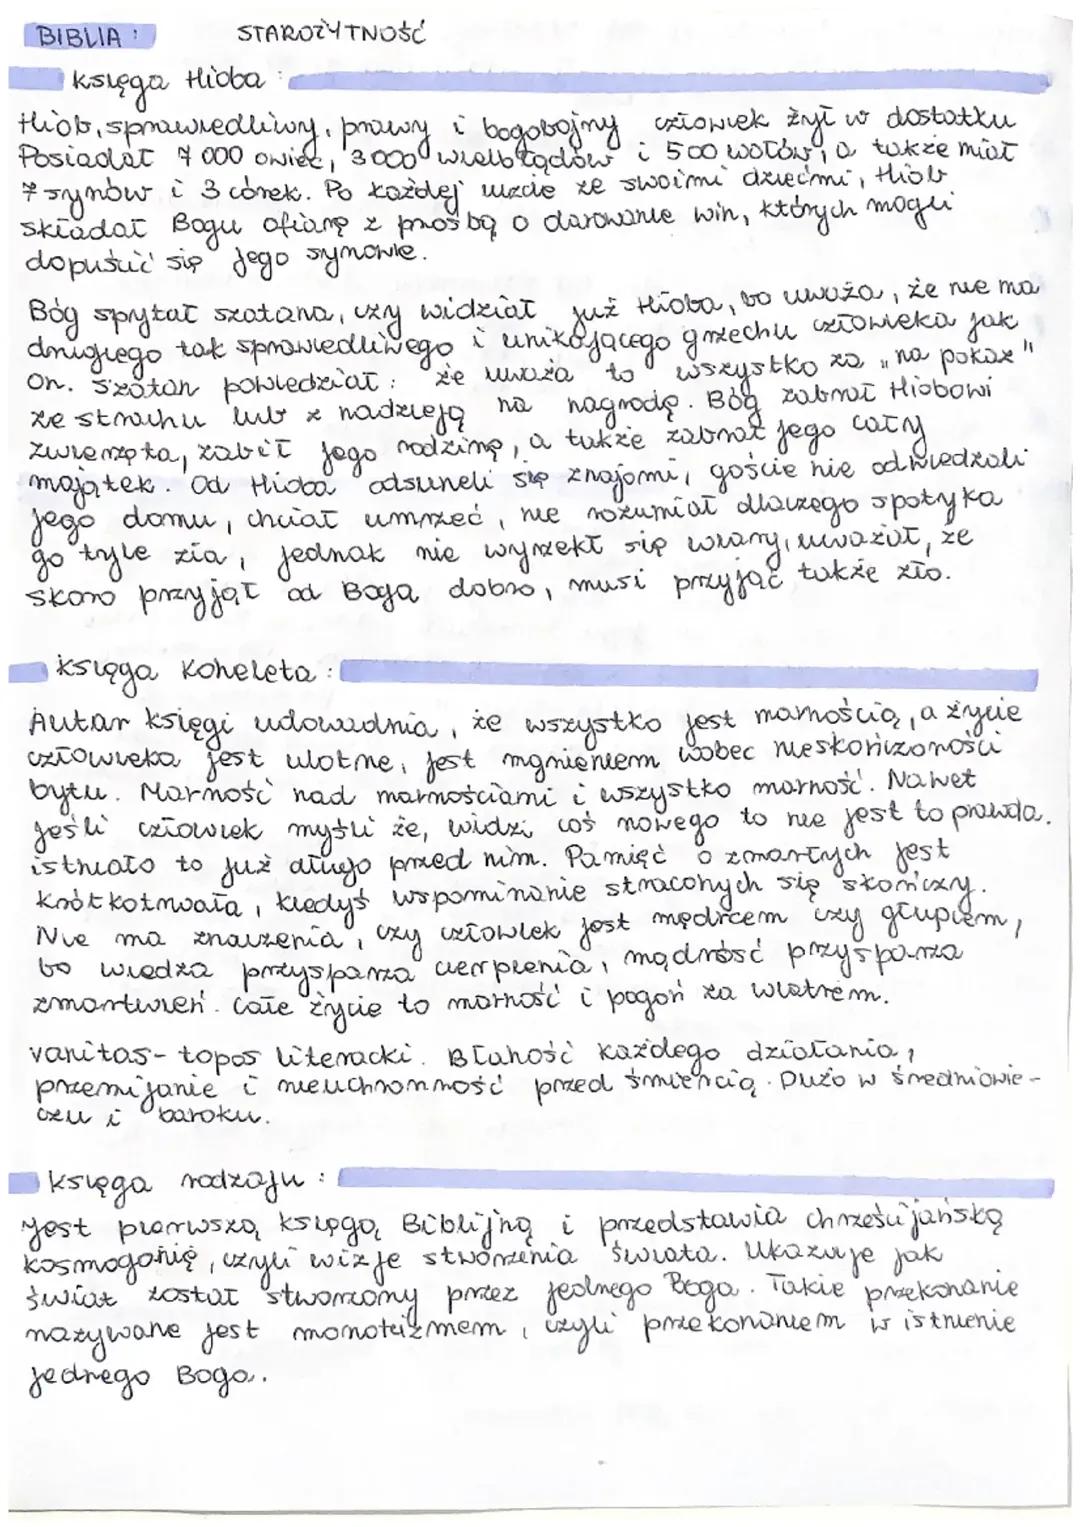 BIBLIA: STAROŻYTNOŚĆ
księga Hioba:
Hiob, sprawiedliwy, prawy i bogobojny człowiek żył w dostatku
Posiadał 7 000 owiec, 3000 wielbłądów i 500 wołów, a także miał
7 synów i 3 córek. Po każdej uczcie ze swoimi dziećmi, Hiob
składał Bogu ofiarę z prośbą o darowanie win, których mogli
dopuścić się jego synowie.
Bóg spytał szatana, czy widział już Hioba, bo uważa, że nie ma
drugiego tak sprawiedliwego i unikającego grzechu człowieka jak
on. Szatan powiedział: że uważa to wszystko za "na pokaz"
ze strachu lub z nadzieją na nagrodę. Bóg zabrał Hiobowi
zwierzęta, zabił jego rodzinę, a także zabrał jego cały
majątek. Od Hioba odsuneli się znajomi, goście nie odwiedzali
jego domu, chciał umrzeć, nie rozumiał dlaczego spotyka
go tyle zła, jednak nie wyrzekł się wiary, uważał, że
skoro przyjął od Boga dobro, musi przyjąć także zło.
księga Koheleta:
Autor księgi udowadnia, że wszystko jest marnością, a życie
człowieka jest ulotne, jest mgnieniem wobec nieskończoności
bytu. Marność nad marnościami i wszystko marność. Nawet
jeśli człowiek myśli że, widzi coś nowego to nie jest to prawda.
istniało to już długo przed nim. Pamięć o zmarłych jest
krótkotrwała, kiedyś wspominanie straconych się skończy.
Nie ma znaczenia, czy człowiek jest mędrcem czy głupiem,
bo wiedza przysparza cierpienia, mądrość przysparza
zmartwień. Całe życie to marność i pogoń za wiatrem.
vanitas- topos literacki. Błahość każdego działania,
przemijanie i nieuchronność przed śmiercią. Dużo w średniowie-
czu i baroku.
księga rodzaju:
Jest pierwszą księgą Biblijną i przedstawia chrześcijańską
kosmogonię, czyli wizje stworzenia świata. Ukazuje jak
świat został stworzony przez jednego Boga. Takie przekonanie
nazywane jest monoteizmem, czyli przekonaniem w istnienie
jednego Boga.